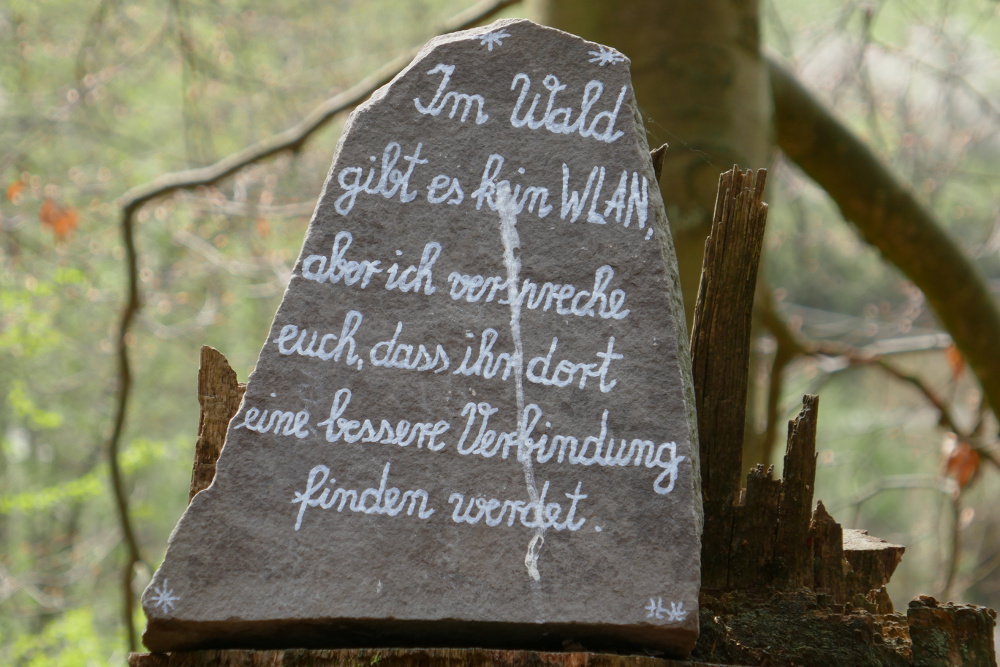 Im Wald
gibt es kein WLAN,
aber ich verspreche
euch, dass ihr dort
eine bessere Verbindung
finden werdet.